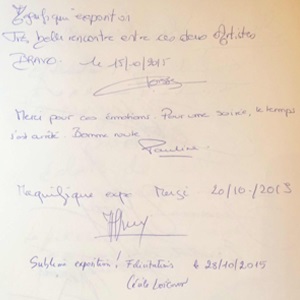 Magnifique exposition
Très belle rencontre entre ces deux Artistes
BRAVO. le 15/10/2015
Merci pour ces émotions. Pour une soirée, le temps
s'est arrêté. Bonne route
Pauline.
Magnifique expo Merci 20/10/2015
Sublime exposition! Félicitations le 23/10/2015